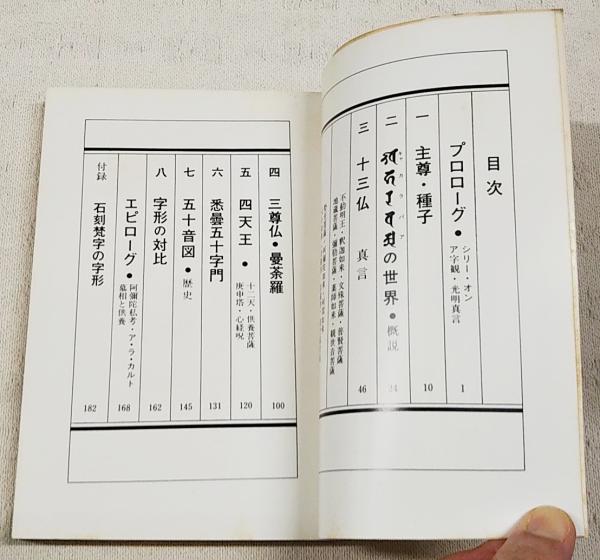 目次
プロローグ●シリー・オン
ア字観・光明真言
1
一 主尊・種子
10
二 の世界●概説
キャ カ ラ バ ア
24
三 十三仏 真言
46
不動明王・釈迦如来・文殊菩薩・普賢菩薩
地蔵菩薩・弥勒菩薩・薬師如来・観世音菩薩
四 三尊仏・曼荼羅
100
五 四天王●十二天・供養菩薩
庚申塔・心経呪
120
六 悉曇五十字門
131
七 五十音図●歴史
145
八 字形の対比
162
エピローグ●阿彌陀私考・ア・ラ・カルト
墓相と供養
168
付録 石刻梵字の字形
182